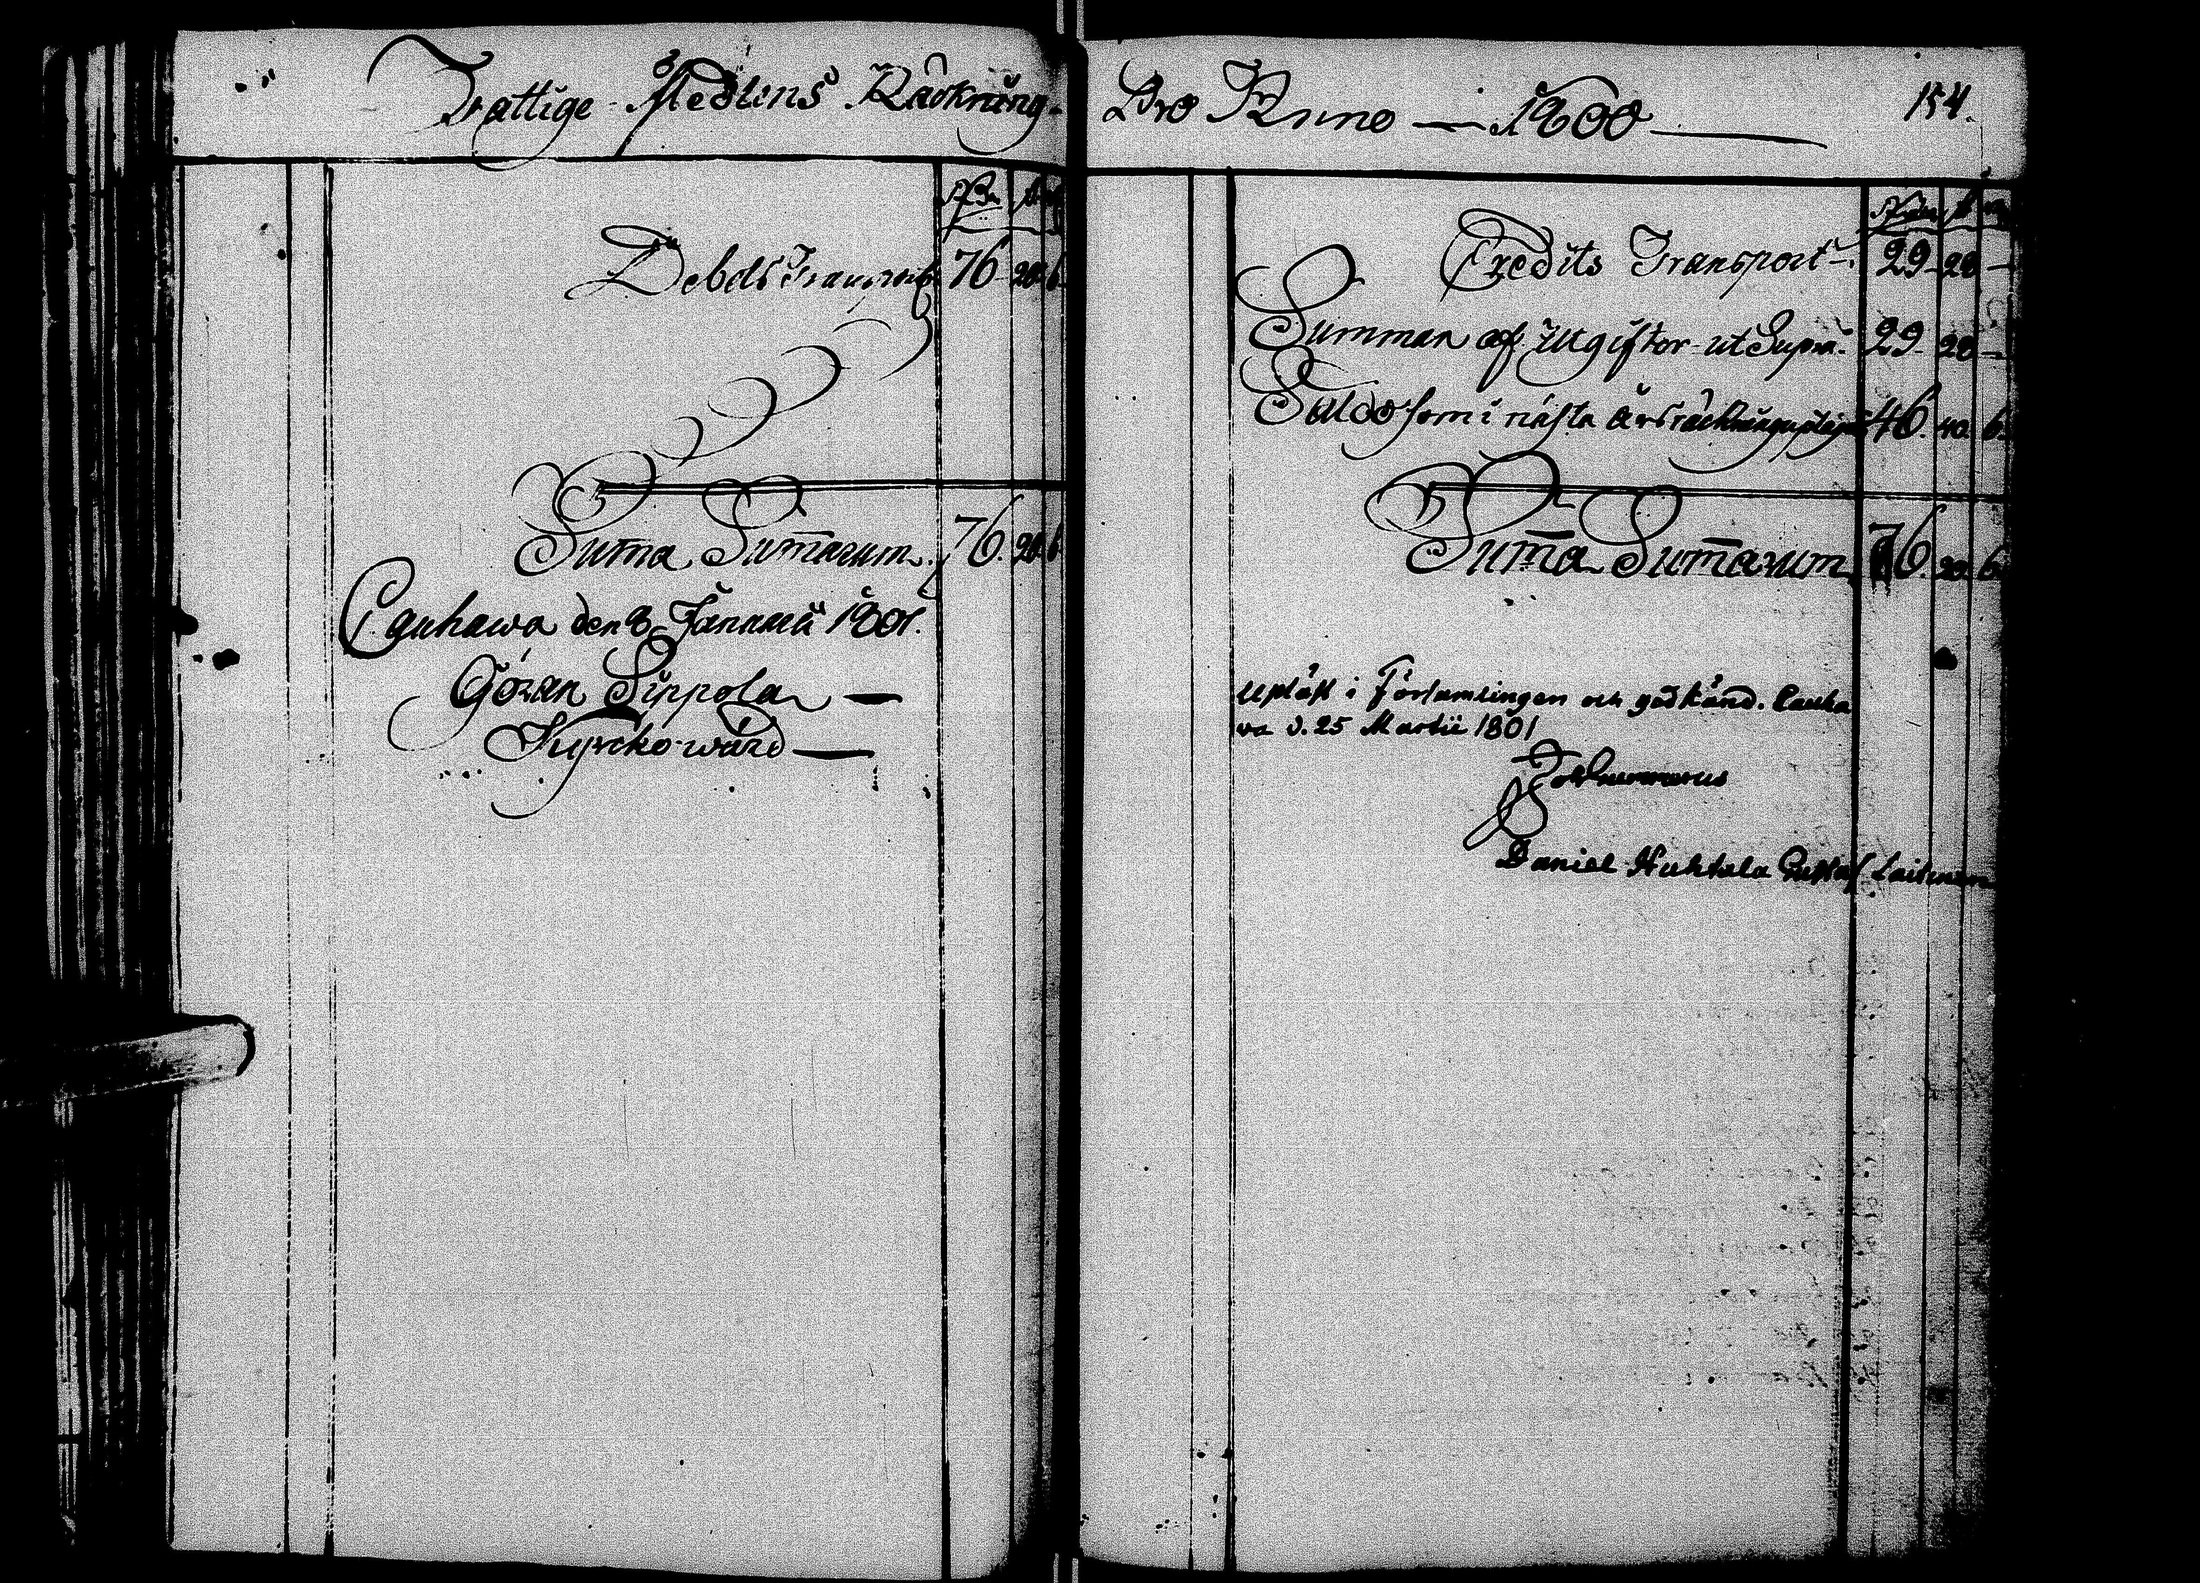 Fattige Medlens Räckning
RBr s
Debets Transport 76 20 6
Summa Summarum 76. 20. 6
Cauhawa den 8 Januarii 1801.
Göran Sippola
Kyrcko-wärd
Pro Anno 1800 154.
Credits Transport 29 28
Summan af Utgifter ut Supra. 29 28
Saldo som i nästa års räckning 46. 40. 6
Summa Summarum 76. 20. 6
Upläst i Församlingen och godkänd. Cauha
va d. 25 Martii 1801
Daniel Huhtala Gustaf Laitinen